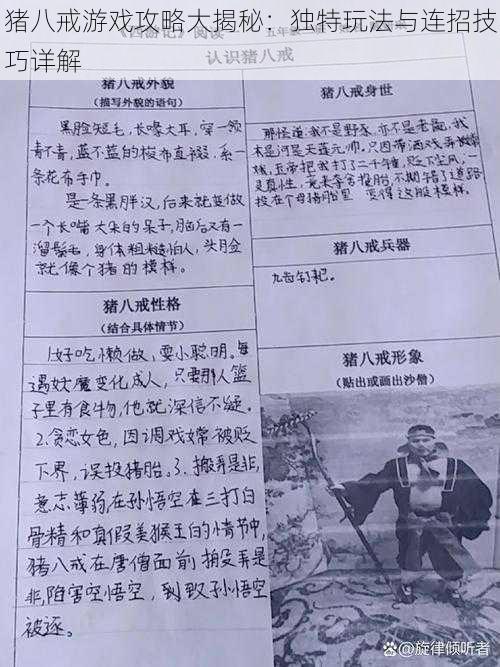 猪八戒游戏攻略大揭秘：独特玩法与连招技
巧详解
《西游记》阅读
认识猪八戒
猪八戒外貌
（描写外貌的语句）
黑脸短毛，长喙大耳，穿一领
青不青，蓝不蓝的梭布直裰，系一
条花布手巾。
是一条黑胖汉，后来就变做
一个长嘴大耳朵的呆子，脑后又有一
溜鬃毛，身体粗糙怕人，头脸
就像个猪的模样。
猪八戒性格
（结合具体情节）
1、好吃懒做，耍小聪明。每
遇妖魔变化成人，只要那人篮
子里有食物，他就深信不疑。
2.贪恋女色，因调戏嫦被贬
下界，误投猪胎。3、搬弄是非，
意志薄弱，在孙悟空在三打白
骨精和真假美猴王的情节中，
猪八戒在唐僧面前搬弄是
非，陷害空悟空，到致孙悟空
被逐。
猪八戒身世
那怪道：我不是野豕，亦不是老彘，我
本是河是天蓬元帅，只因带酒戏弄嫦
娥，玉帝把我打了二千锤，贬下尘凡，一
灵真性，竟来夺舍投胎，不期错了道路
投在个母猪胎里，变得这般模样。
猪八戒兵器
九齿钉耙。
猪八戒形象
（贴出或画出沙僧）
@旋律倾听者